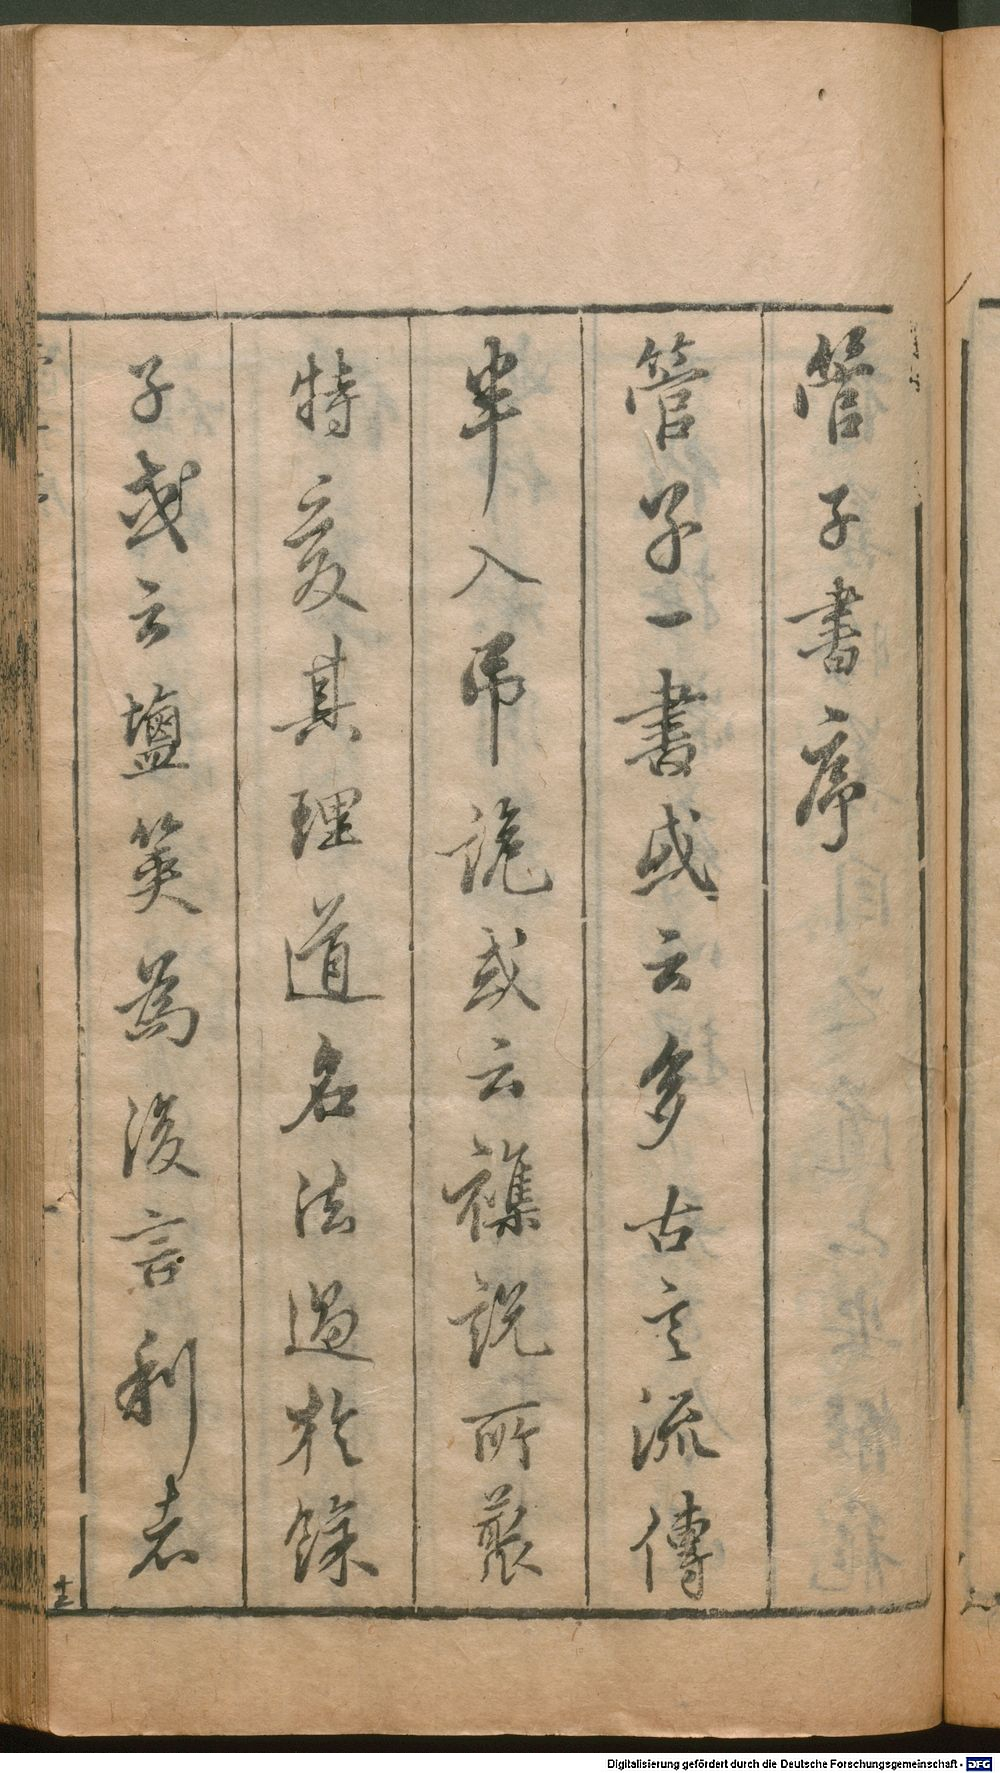 管子書序
管子一書或云多古言流傳
半入弔詭或云襍說所聚
特爰其理道名法過於餘
子或云鹽筴為後言利者
十一
Digitalisierung gefördert durch die Deutsche Forschungsgemeinschaft - DFG